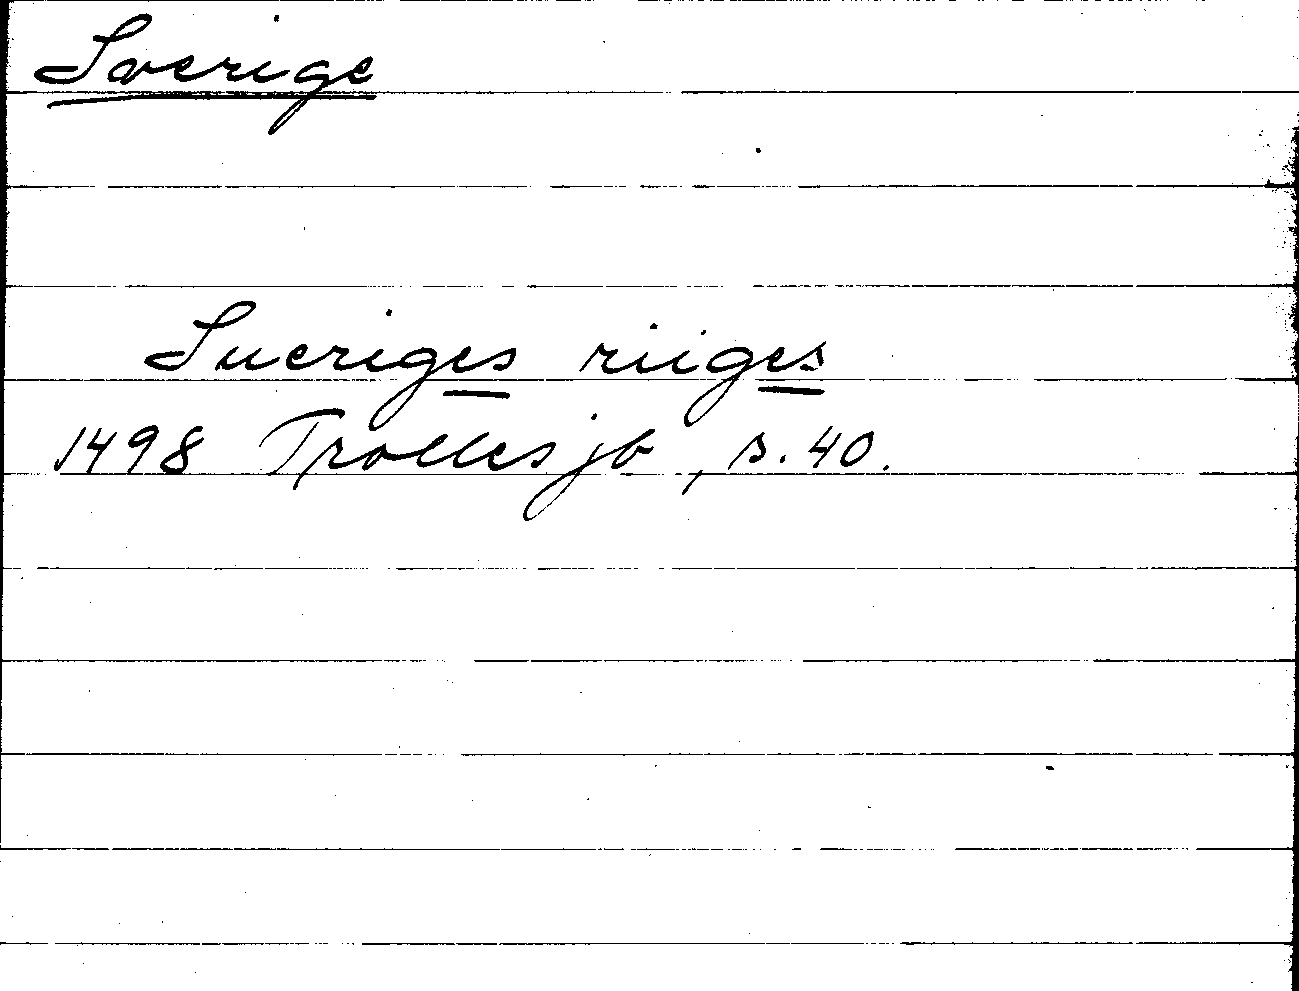 Sverige
Sueriges riiges
1498 Trolles jb, s. 40.